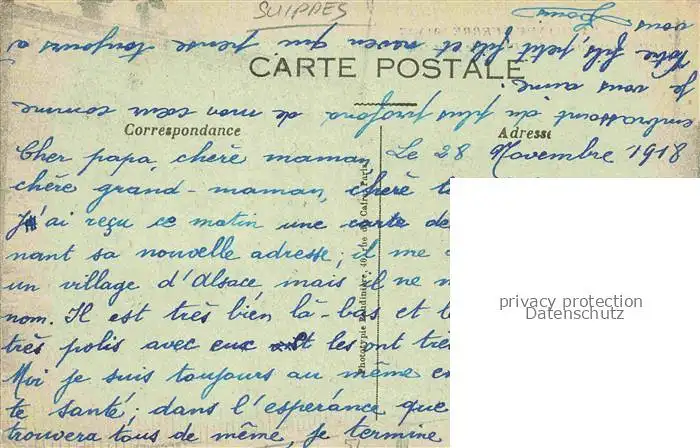 SUIPPES
CARTE POSTALE
Correspondance
Adresse
Le 28 Novembre 1918
Cher papa, chère maman
chère grand-maman, chère
J'ai reçu ce matin une carte de
nant sa nouvelle adresse; il me
un village d'Alsace, mais il ne
nom. Il est très bien là-bas et
très polis avec eux et les ont
Moi je suis toujours au même
te santé; dans l'espérance que
trouvera tous de même, je termine
embrassant du plus profond de mon cœur comme
je vous aime.
Votre fils, petit-fils et neveu qui pense toujours à
vous
Louis
privacy protection
Datenschutz